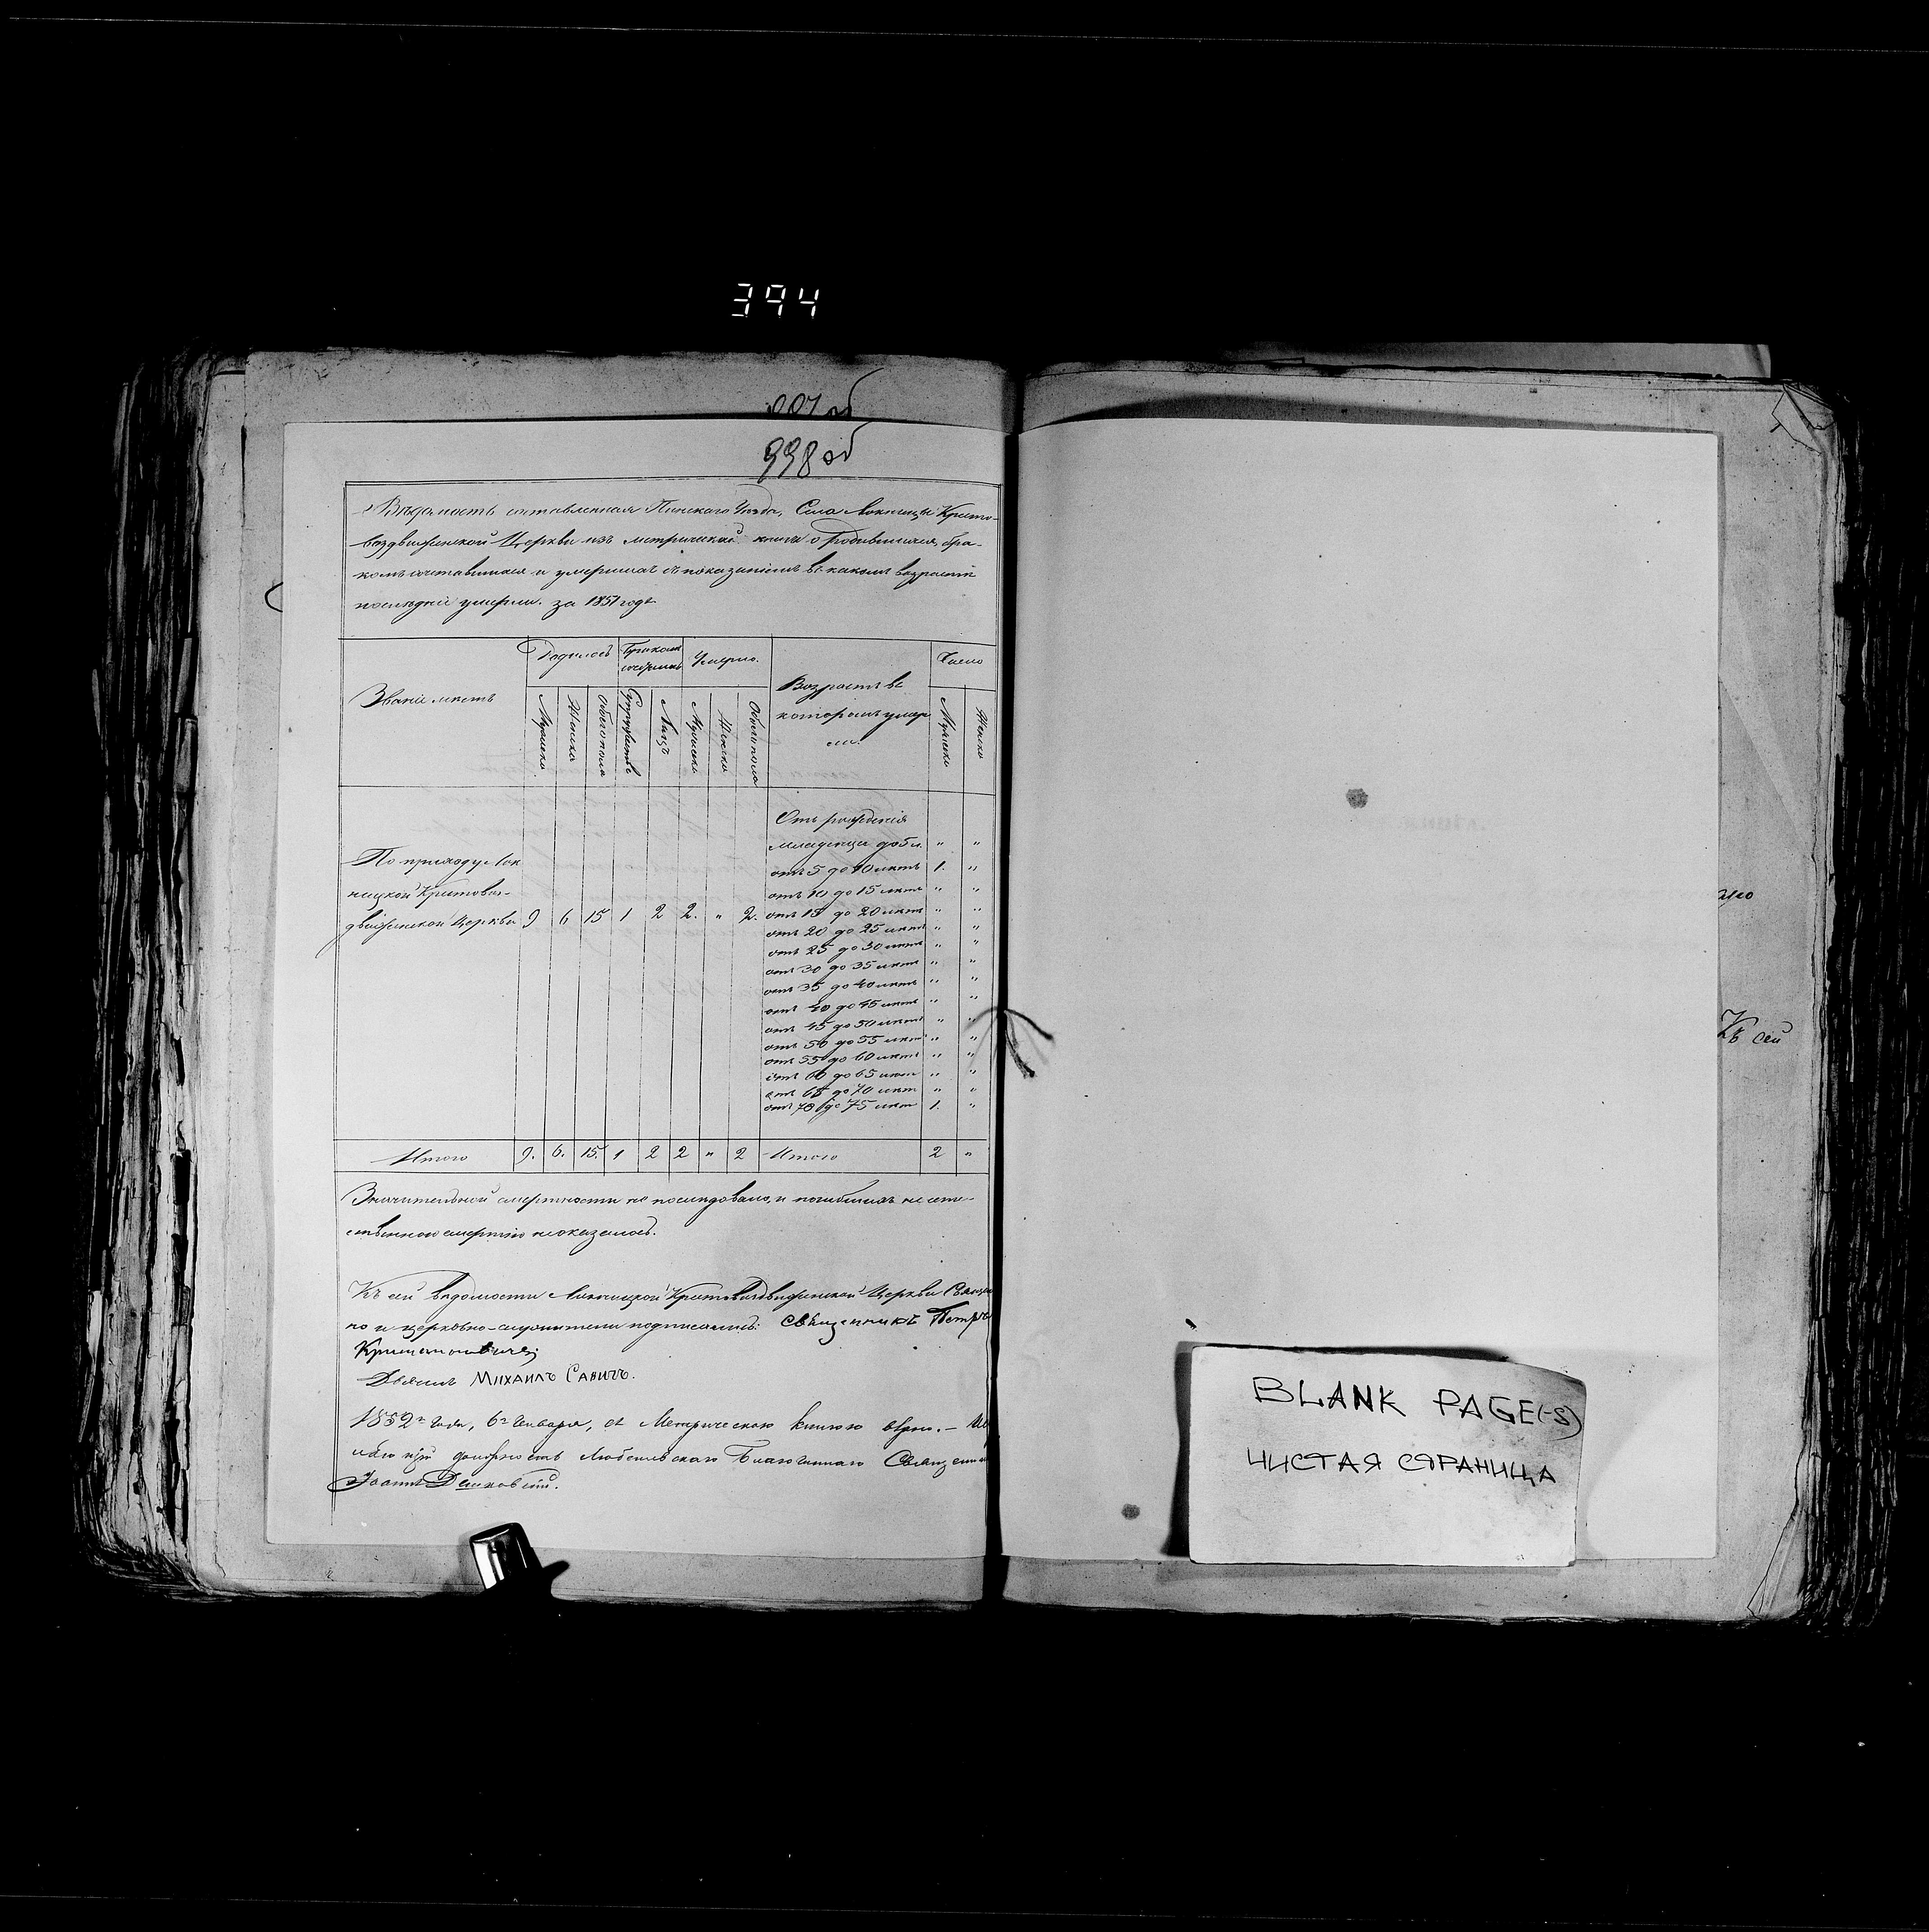 394
998 об
Вѣдомость составленная Пинскаго Уѣзда, Села Локницы Кресто-
воздвиженской Церкви изъ метрической книги о родившихся, бра-
комъ сочетавшихся и умершихъ съ показаніемъ въ какомъ возрастѣ
послѣдніе умерли. за 1851 годъ
Званіе мѣстъ
Родилось
Бракомъ
Умерло.
Возрастъ въ
которомъ умер
ли.
Число
Мужеска
Женска
Обоего пола
Супружествъ
Лицъ
Мужеска
Женска
Обоего пола
Мужеска
Женска
По приходу Лок
ницкой Крестовоз-
движенской Церкви 9 6 15 1 2 2. " 2.
Отъ рожденія
младенцы до 5 л. " "
отъ 5 до 10 лѣтъ 1. "
отъ 10 до 15 лѣтъ " "
отъ 15 до 20 лѣтъ " "
отъ 20 до 25 лѣтъ " "
отъ 25 до 30 лѣтъ " "
отъ 30 до 35 лѣтъ " "
отъ 35 до 40 лѣтъ " "
отъ 40 до 45 лѣтъ " "
отъ 45 до 50 лѣтъ " "
отъ 50 до 55 лѣтъ " "
отъ 55 до 60 лѣтъ " "
отъ 60 до 65 лѣтъ " "
отъ 65 до 70 лѣтъ " "
отъ 70 до 75 лѣтъ 1. "
Итого 9. 6. 15. 1 2 2 " 2 Итого 2 "
Значительной смертности не послѣдовало, и погибшихъ не есте-
ственною смертію не оказалось.
Къ сей вѣдомости Локницкой Крестовоздвиженской Церкви Священ
но и церковно-служители подписались: Священникъ Петръ
Дьячекъ Михаилъ Савичъ.
1852 года, 6 Января, съ Метрическою книгою вѣрно. –
должность Любешевскаго Благочиннаго Священникъ
Іоаннъ
Къ сей
BLANK PAGE(-S)
ЧИСТАЯ СТРАНИЦА